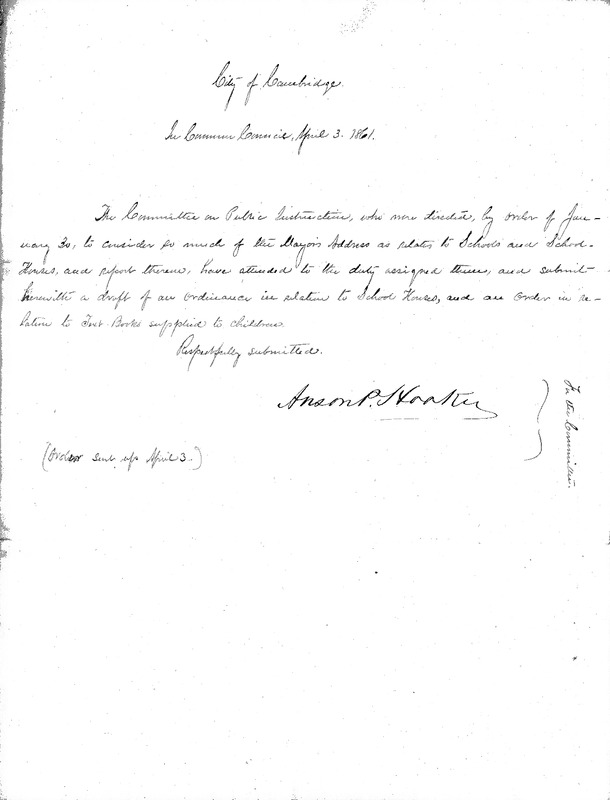 City of Cambridge.
In Common Council, April 3. 1861.
The Committee on Public Instruction, who were directed, by order of Jan-
uary 30, to consider so much of the Mayor's Address as relates to Schools and School-
Houses, and report thereon, have attended to the duty assigned them, and submit
herewith a draft of an Ordinance in relation to School Houses, and an Order in re-
lation to Text Books supplied to children.
Respectfully submitted.
Anson P. Hooker
For the Committee.
(Order sent up April 3.)